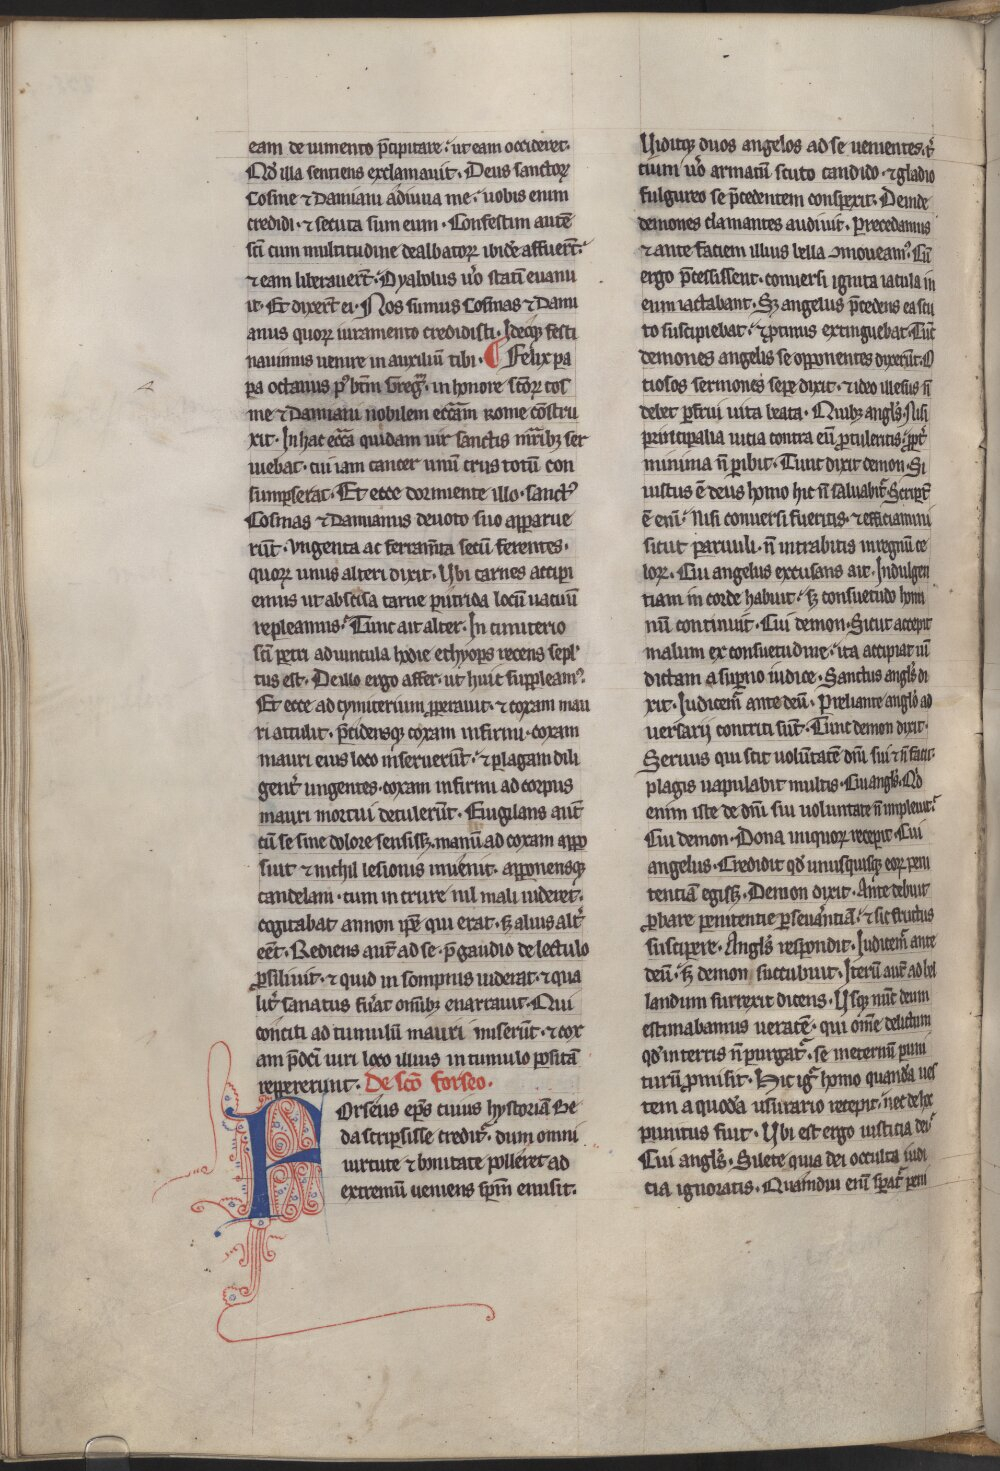 eam de iumento p̄cipitare. ut eam occideret.
Qd̓ illa sentiens exclamauit. Deus sanctoꝝ
Cosme ⁊ Damiani adiuua me. uobis enim
credidi. ⁊ secuta sum eum. Confestim autē
sc̄i cum multitudine dealbatoꝝ ibidē affuer̄t.
⁊ eam liberauer̄t. Dyabolus u̓o statī euanu
it. Et dixer̄t ei. Nos sumus Cosmas ⁊ Dami
anus quoꝝ iuramento credidisti. Ideoqꝫ festi
nauimus uenire in auxiliū tibi. ¶ Felix pa
pa octauus p̓ btm̄ Greg̓. in honore sc̄oꝝ cos
me ⁊ Damiani nobilem ecc̄am Rome cōstru
xit. In hac ecc̄a quidam uir sanctis mr̄ibꝫ ser
uiebat. cui iam cancer unū crus totū con
sumpserat. Et ecce dormiente illo. sanctꝰ
Cosmas ⁊ Damianus deuoto suo apparue
rūt. ungenta ac ferram̄ta secū ferentes.
quoꝝ unus alteri dixit. Ubi carnes accipi
emus ut abscisa carne putrida locū uacuū
repleamus. Tunc ait alter. In cimiterio
sc̄i petri ad uincula hodie ethyops recens sepl̓
tus est. De illo ergo affer. ut huic suppleamꝰ.
Et ecce ad cymiterium ꝓperauit. ⁊ coxam mau
ri attulit. p̄cidensqꝫ coxam infirmi. coxam
mauri eius loco inseruerūt. ⁊ plagam dili
gent̓ ungentes. coxam infirmi ad corpus
mauri mortui detulerūt. Euigilans aūt
cū se sine dolore sensissꝫ. manū ad coxam appo
suit ⁊ nichil lesionis inuenit. apponensqꝫ
candelam. cum in crure nil mali uideret.
cogitabat an non ip̄e qui erat. sꝫ alius alt̓
eēt. Rediens aūt ad se. p̄ gaudio de lectulo
ꝓsiliuit. ⁊ quid in sompnis uiderat. ⁊ qua
lit̓ sanatus fu̓at om̄ibꝫ enarrauit. Qui
concití ad tumulū mauri miserūt. ⁊ cox
am p̄dc̄i uiri loco illius in tumulo positā
repererunt. De sc̄o forseo.
Forseus ep̄s cuius hystoriā Be
da scripsisse credit̓. dum omni
uirtute ⁊ bonitate polleret ad
extremū ueniens sp̄m emisit.
Uiditqꝫ duos angelos ad se uenientes. ⁊
cium u̓o armatū scuto candido. ⁊ gladio
fulgureo se p̄cedentem conspexit. Deinde
demones clamantes audiuit. Precedamus
⁊ ante faciem illius bella ↄmoueamꝰ. Cū
ergo p̄cessissent. conuersi ignita iacula in
eum iactabant. Sꝫ angelus p̄cedens ea scu
to suscipiebat. ⁊ ꝓtinus extinguebat. Tūc
demones angelis se opponentes dixerūt. O
tiosos sermones sepe dixit. ⁊ ideo illesus n̄
debet perfrui uita beata. Quibꝫ anglꝰ. Nisi
principalia uitia contra eū ꝓtuleritis. ꝓpt̓
minima n̄ ꝑibit. Tunc dixit demon. Si
iustus ē deus homo hic n̄ saluabit̓. Script̄
ē eni. Nisi conuersi fueritis. ⁊ efficiamini
sicut paruuli. n̄ intrabitis in regnū ce
loꝝ. Cui angelus excusans ait. Indulgen
tiam in corde habuit. sꝫ consuetudo homi
nū continuit. Cui demon. Sicut accepit
malum ex consuetudine. ita accipiat ui
dictam a supno iudice. Sanctus anglꝰ di
xit. Iudicem̓ ante deū. Preliante anglo ad
uersarij contriti sūt. Tunc demon dixit.
Seruus qui scit uolūtatē dn̄i sui ⁊ n̄ facit.
plagis uapulabit multis. Cui anglꝰ. Qd̓
enim iste de dn̄i sui uoluntate n̄ impleuit.
Cui demon. Dona iniquoꝝ recepit. Cui
angelus. Credidit qd̓ unusquisqꝫ eoꝝ peni
tentiā egissꝫ. Demon dixit. Ante debuit
ꝓbare penitentie ꝑseu̓antiā. ⁊ sic fructus
suscipere. Anglꝰ respondit. Iudicem̓ ante
deū. sꝫ demon succubuit. Iterū aūt ad bel
landum surrexit dicens. Usqꝫ nūc deum
estimabamus ueracē. qui om̄e delictum
qd̓ in terris n̄ purgat̓. se in eternū puni
turū ꝓmisit. Hic ig̓ homo quandā ues
tem a quodā usurario recepit. nec de hoc
punitus fuit. Ubi est ergo iusticia dei
Cui anglꝰ. Silete quia dei occulta iudi
cia ignoratis. Quamdiu eni sperat̓ peni